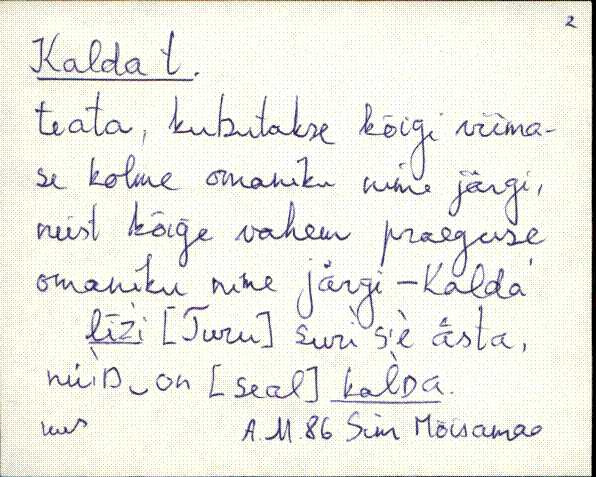 2
Kalda t.
teata, kutsutakse kõigi viima-
se kolme omaniku nime järgi,
neist kõige vähem praeguse
omaniku nime järgi – Kalda
līzi [Turu] suri s'è āsta,
nüiD‿on [seal] kalDa.
A.M. 86 Sim Mõisamaa